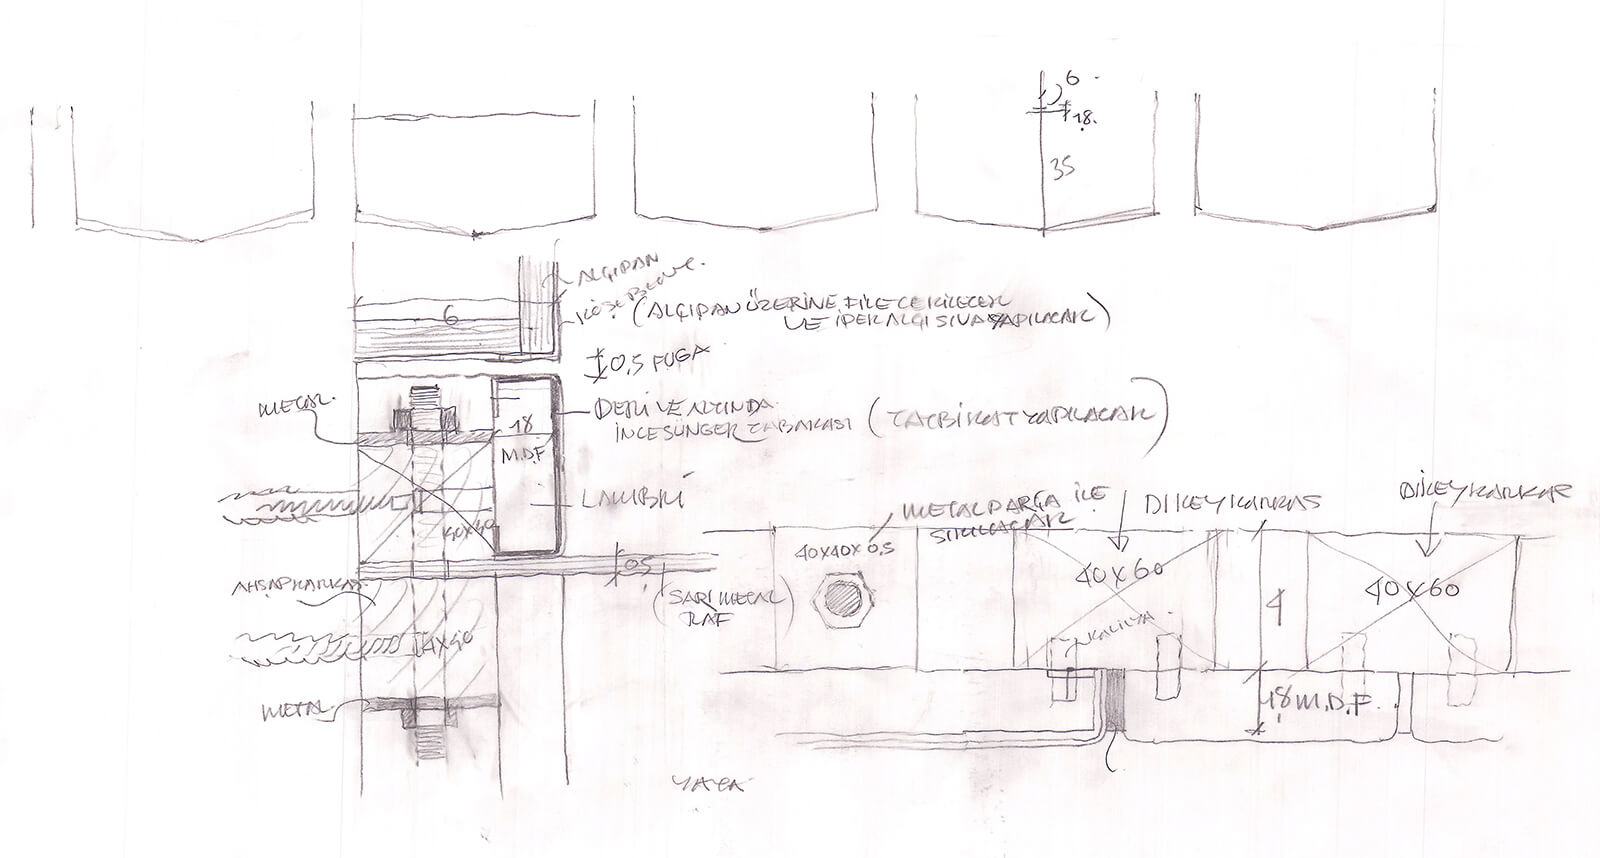 6
18.
35
ALÇIPAN
KÖŞEBENT.
6
(ALÇIPAN ÜZERİNE FİLE ÇEKİLECEK
VE İPEK ALÇI SIVA YAPILACAK)
0,5 FUGA
METAL.
DERİ VE ALTINDA
İNCE SÜNGER TABAKASI (TATBİKAT YAPILACAK)
18
M.D.F
LAMBRİ
METAL PARÇA İLE
SIKILACAK
DİKEY KARKAS
DİKEY KARKAS
40X40X0,5
40X60
4
40X60
AHŞAP KARKAS
0,5
(SARI METAL)
RAF
KAVİLYA
METAL
18 M.D.F.